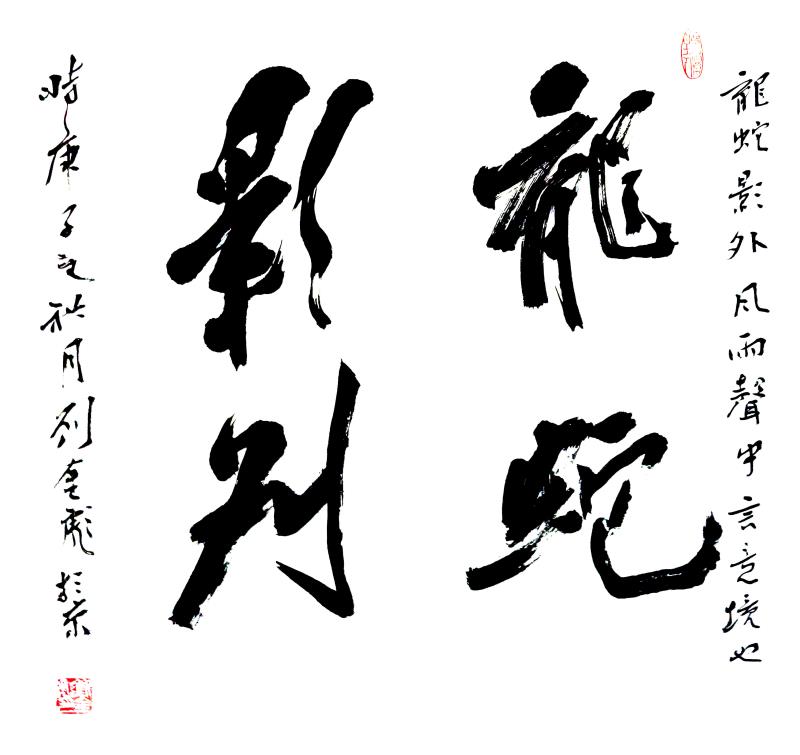 龍蛇影外風雨聲中言意境也
龍蛇
影外
時庚子之秋月刘金彪於京